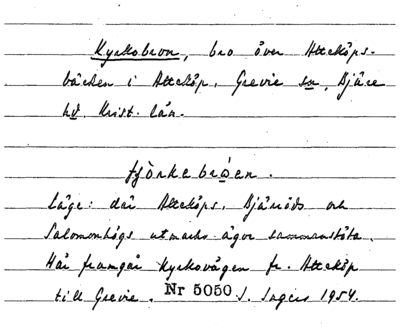 Kyrkobron, bro över Atteköps-
bäcken i Atteköp, Grevie sn, Bjäre
hd Krist. län.
Läge: där Atteköps, Bjäröds och
Salomonhögs utmarks ägor sammanstöta.
Här framgår Kyrkovägen fr. Atteköp
till Grevie. Nr 5050 S. Ingers 1954.